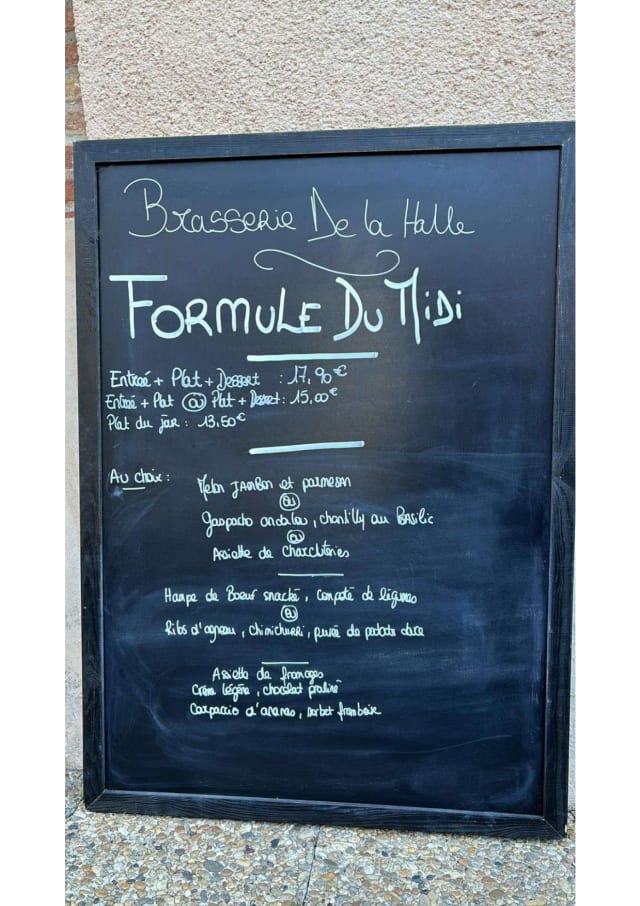 Brasserie De la Halle
FORMULE DU MiDi
Entreé + Plat + Dessert : 17,90€
Entreé + Plat ou Plat + Dessert : 15,00€
Plat du jour : 13,50€
Au choix :
Melon JAMBon et parmesan
ou
Gaspacho andalou, chantilly au BASilic
ou
Assiette de charcuteries
Hampe de Boeuf snacké, compoté de légumes
ou
Ribs d'agneau, chimichurri, purée de patate douce
Assiette de fromages
Crème légère, chocolat praliné
Carpaccio d'ananas, sorbet framboise